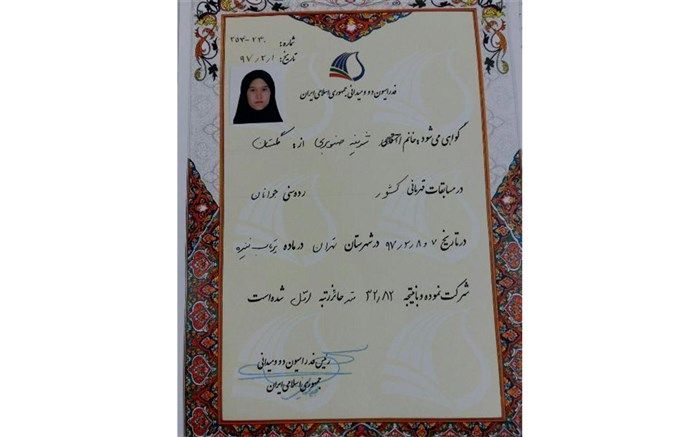 شماره: ۲۵۳-۲۳۰
تاریخ: ۹۷/۲/۱
فدراسیون دو و میدانی جمهوری اسلامی ایران
گواهی می‌شود: خانم / آقای از: گلستان
در مسابقات قهرمانی کشور رده سنی جوانان
در تاریخ ۷ و ۸ در شهرستان تهران در ماده پرتاب نیزه
شرکت نموده و با نتیجه ۳۲/۸۲ متر حائز رتبه اول شده است
رئیس فدراسیون دو و میدانی
جمهوری اسلامی ایران